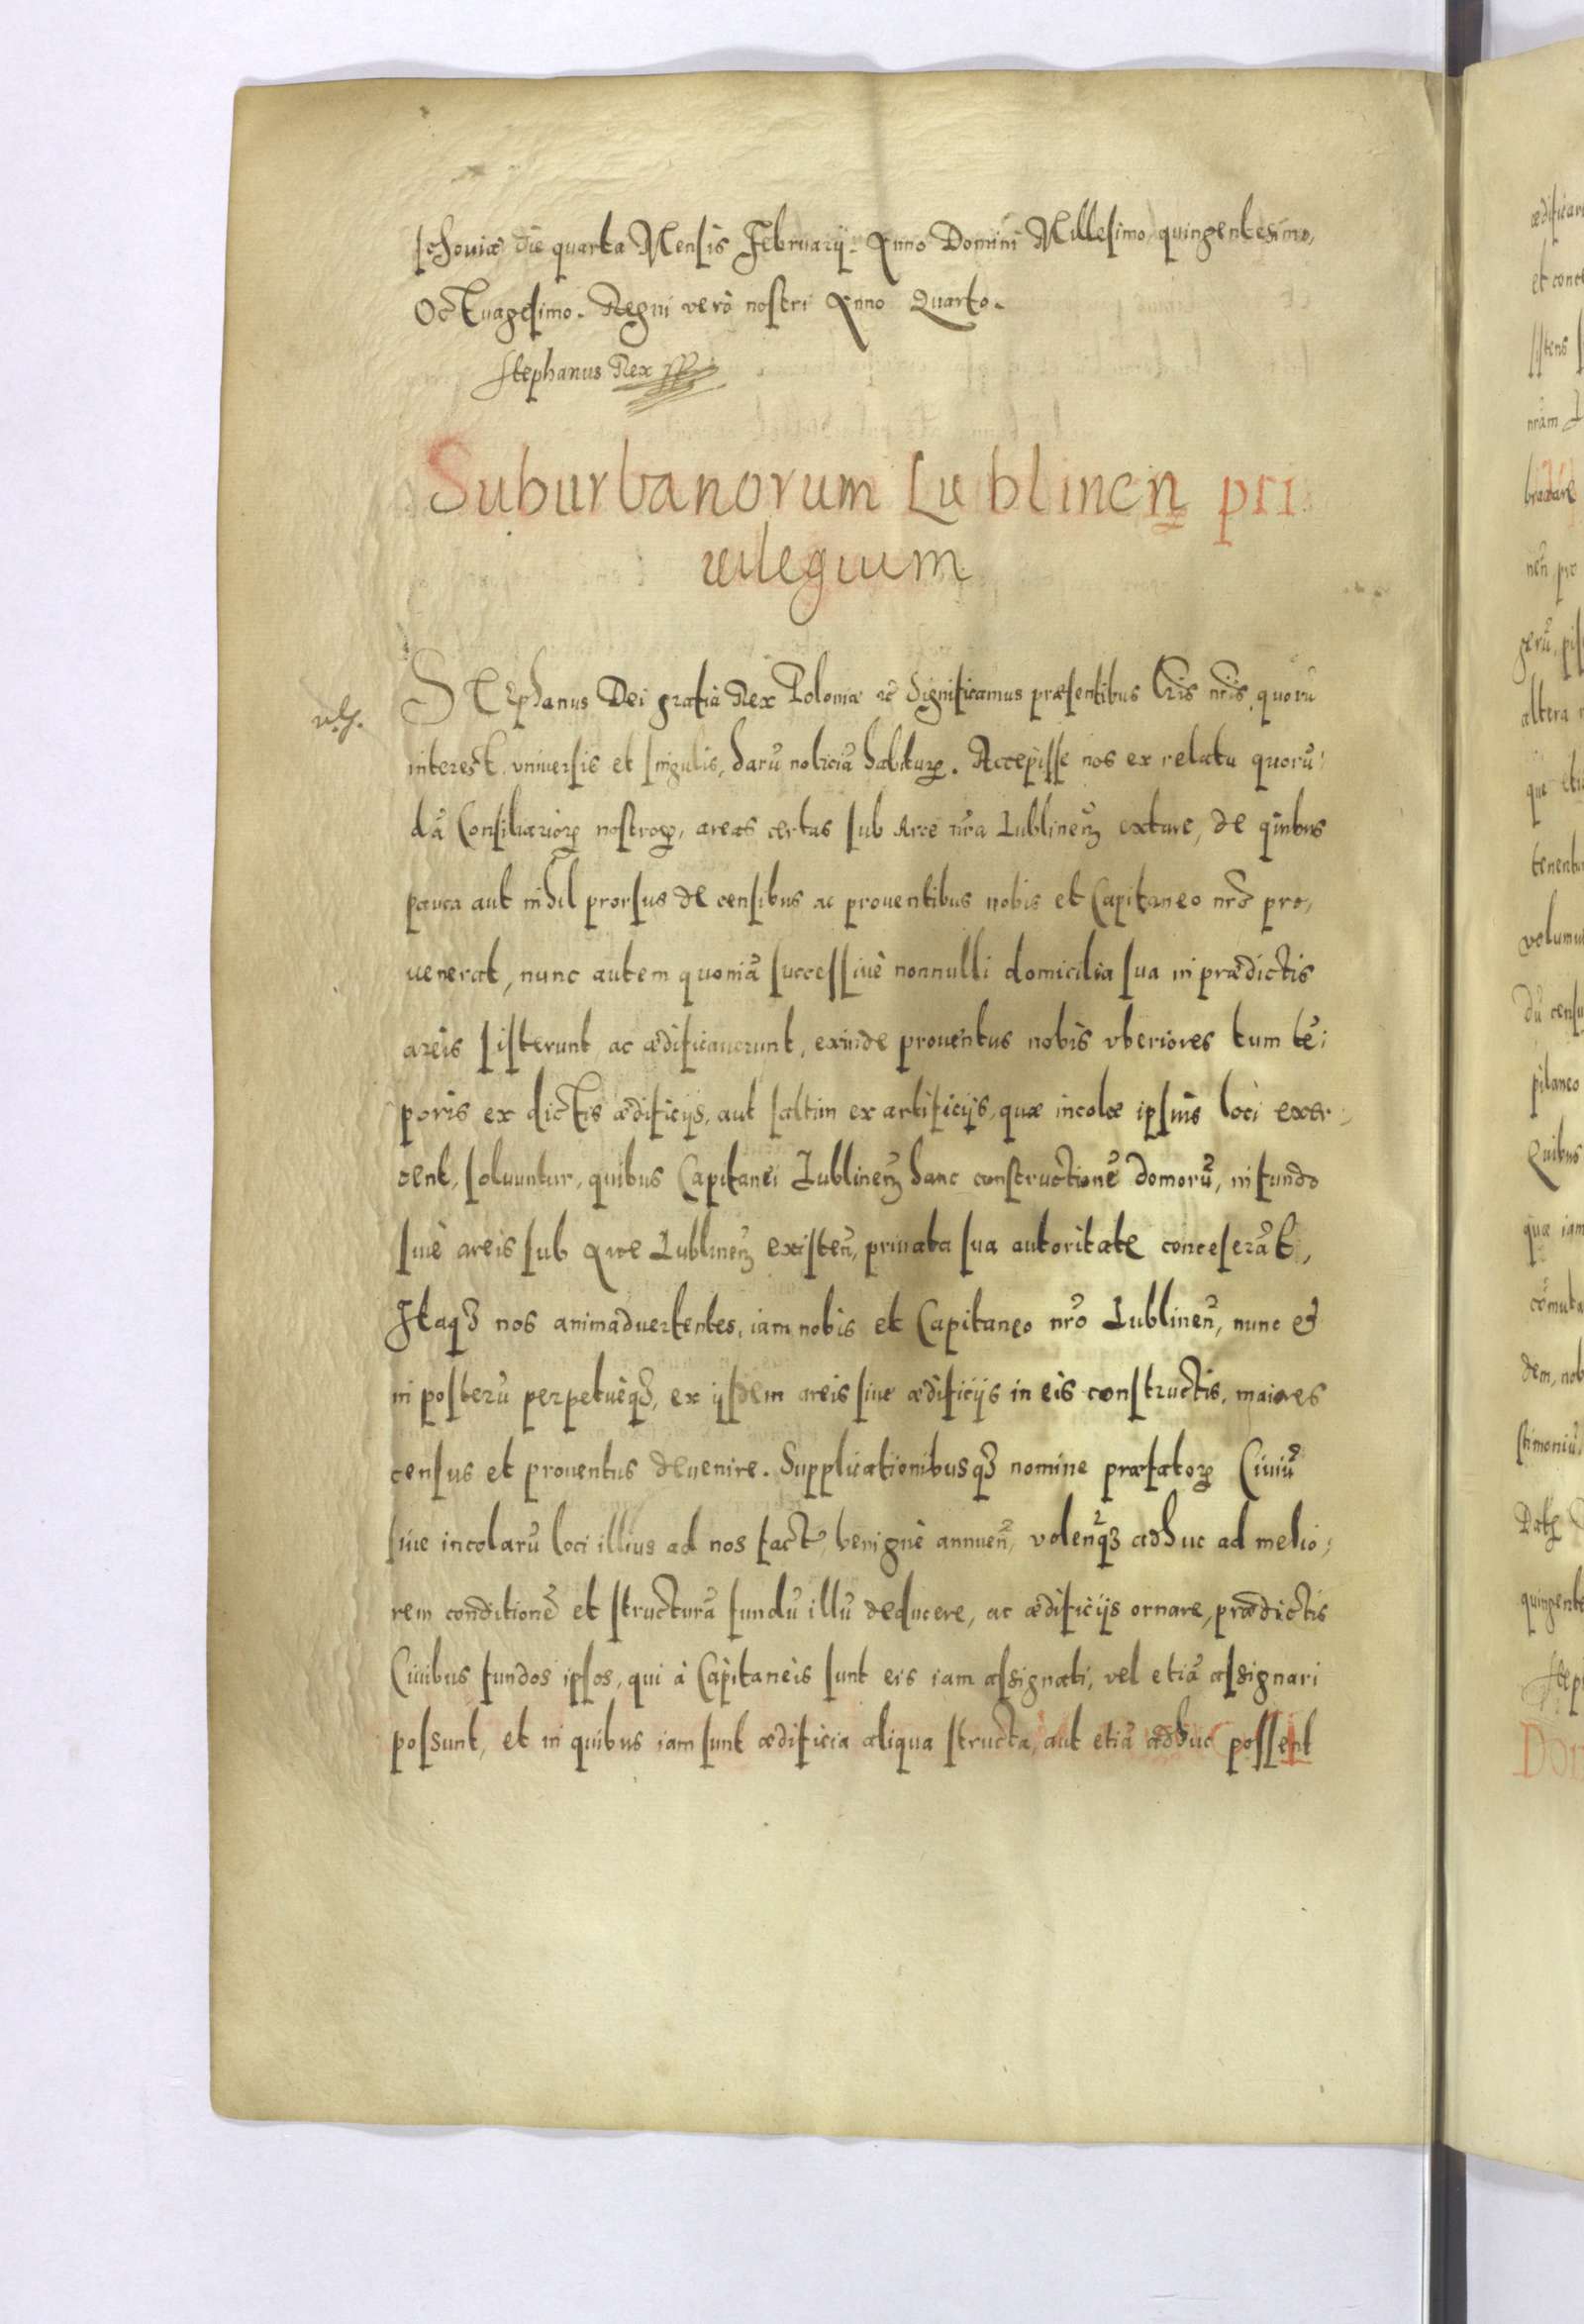 schouiæ die quarta Mensis Februarij. Anno Domini Millesimo quingentesimo,
Octuagesimo. Regni verò nostri Anno Quarto.
Stephanus Rex
Suburbanorum Lublinen̄ pri
uilegium
STephanus Dei gratia Rex Poloniæ etc̃ Significamus præsentibus Lr̃is nr̃is, quorũ
interest, vniuersis et singulis, harũ noticiã habiturꝝ. Accepisse nos ex relatu quorũ:
dã Consiliariorꝝ nostrorꝝ, areas certas sub Arce nr̃a Lublinen̄ extare, de quibus
pauca aut nihil prorsus de censibus ac prouentibus nobis et Capitaneo nr̃o pro,
uenerat, nunc autem quoniã successiuè nonnulli domicilia sua in prædictis
areis sisterunt ac ædificauerunt, exinde prouentus nobis vberiores tum tẽ;
poris ex dictis ædificijs, aut saltim ex artificijs, quæ incolæ ipsius loci exer;
cent, soluuntur, quibus Capitanei Lublinen̄ hanc constructionẽ domorũ, in fundo
siuè areis sub Arce Lublinen̄ existen̄, priuata sua autoritate conceserãt,
Itaqꝫ nos animaduertentes, iam nobis et Capitaneo nr̃o Lublinen̄, nunc et
in posterũ perpetuèqꝫ, ex ijsdem areis siue ædificijs in eis constructis, maiores
census et prouentus deuenire. Supplicationibusqꝫ nomine præfatorꝝ Ciuiũ
siue incolarũ loci illius ad nos fact̃, benignè annuen̄, volen̄qꝫ adhuc ad melio;
rem conditionẽ et structurã fundũ illũ deducere, ac ædificijs ornare, prædictis
Ciuibus fundos ipsos, qui à Capitaneis sunt eis iam assignati, vel etiã assignari
possunt, et in quibus iam sunt ædificia aliqua structa, aut etiã adhuc possent